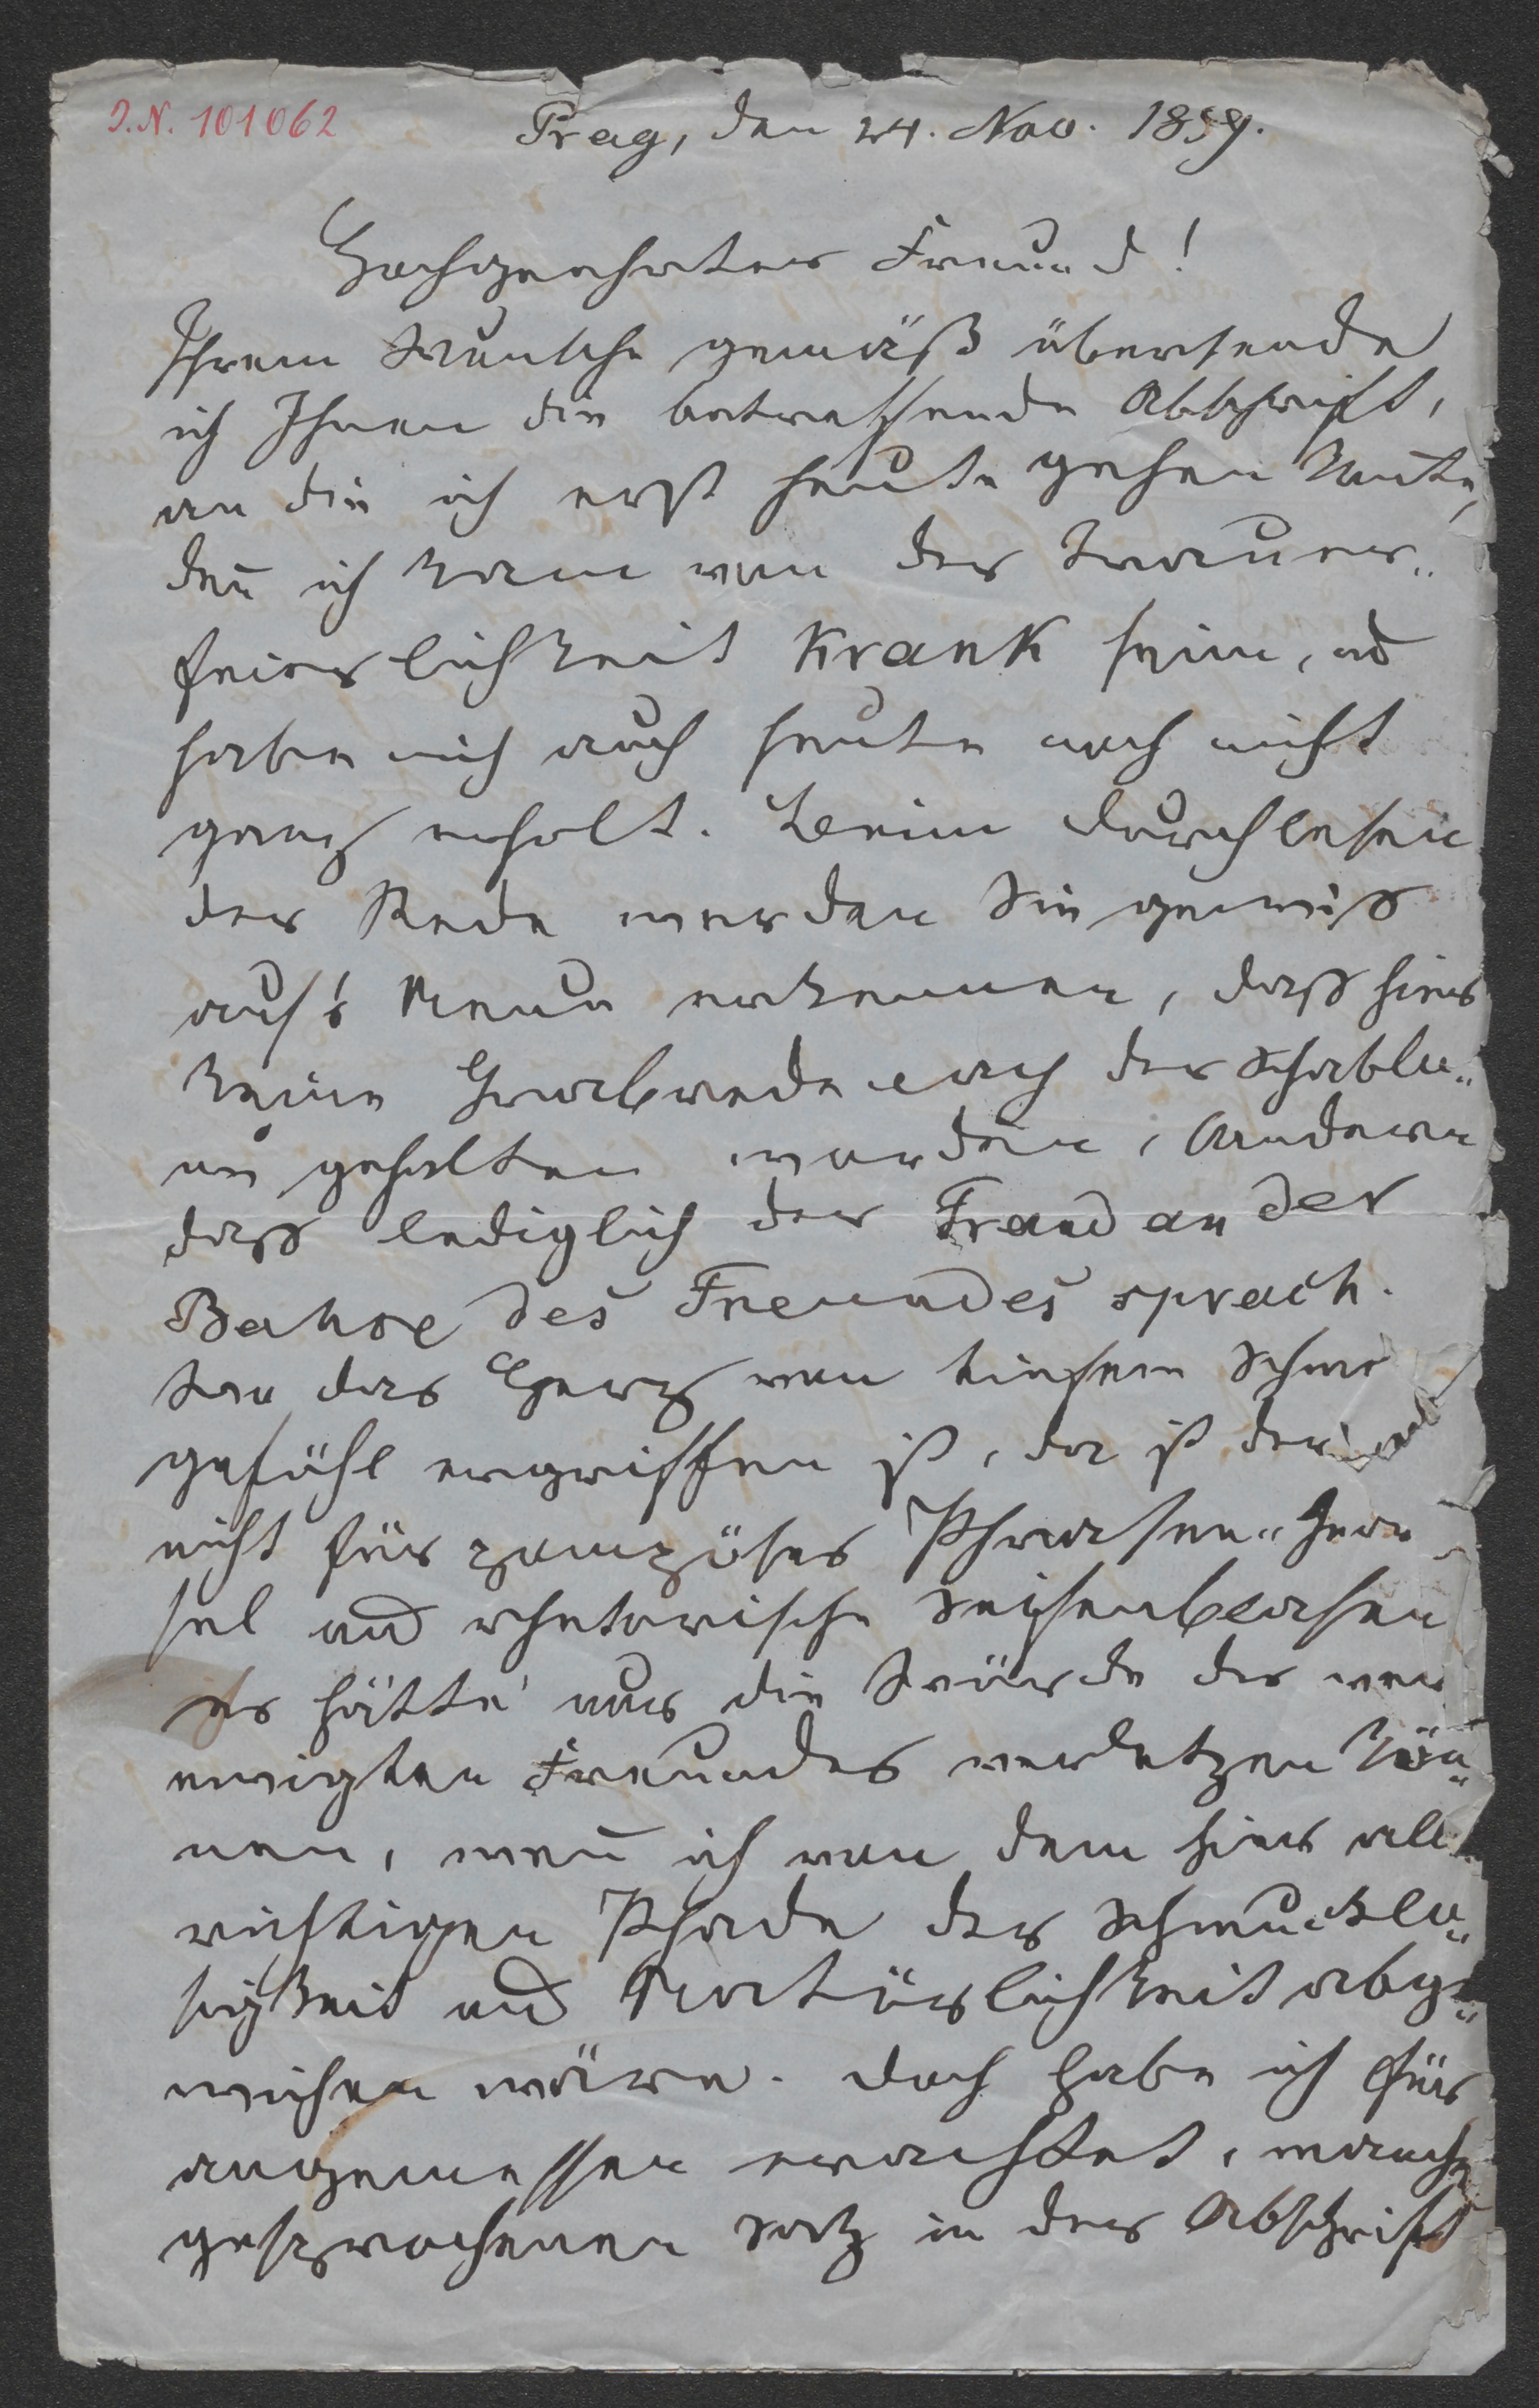 I.N. 101062
Prag, den 24. Nov. 1859.
Hochgeehrter Freund!
Ihrem Wunsche gemäß übersende
ich Ihnen die betreffende Abschrift,
an die ich erst heute gehen konnte,
deñ ich kam von der Trauer-
feierlichkeit krank heim, und
habe mich auch heute noch nicht
ganz erholt. Beim Durchlesen
der Rede werden Sie gewiß
auf's Neue erkennen, daß hier
keine Grabrede nach der Schablo-
ne gehalten worden, sondern
daß lediglich der Freund an der
Bahre des Freundes sprach.
Wo das Herz von tiefem Schmerz
gefühl ergriffen ist, da ist der
nicht für pompöses Phrasen-
sel und rhetorische Seifenblasen
es hätte nur die Würde des ver
ewigten Freundes verletzen kön-
nen, weñ ich von dem hier all
richtigen Pfade der Schmucklo-
sigkeit und Natürlichkeit abge-
wichen wäre. Doch habe ich für
angemessen erachtet, manchen
gesprochenen Satz in der Abschrift